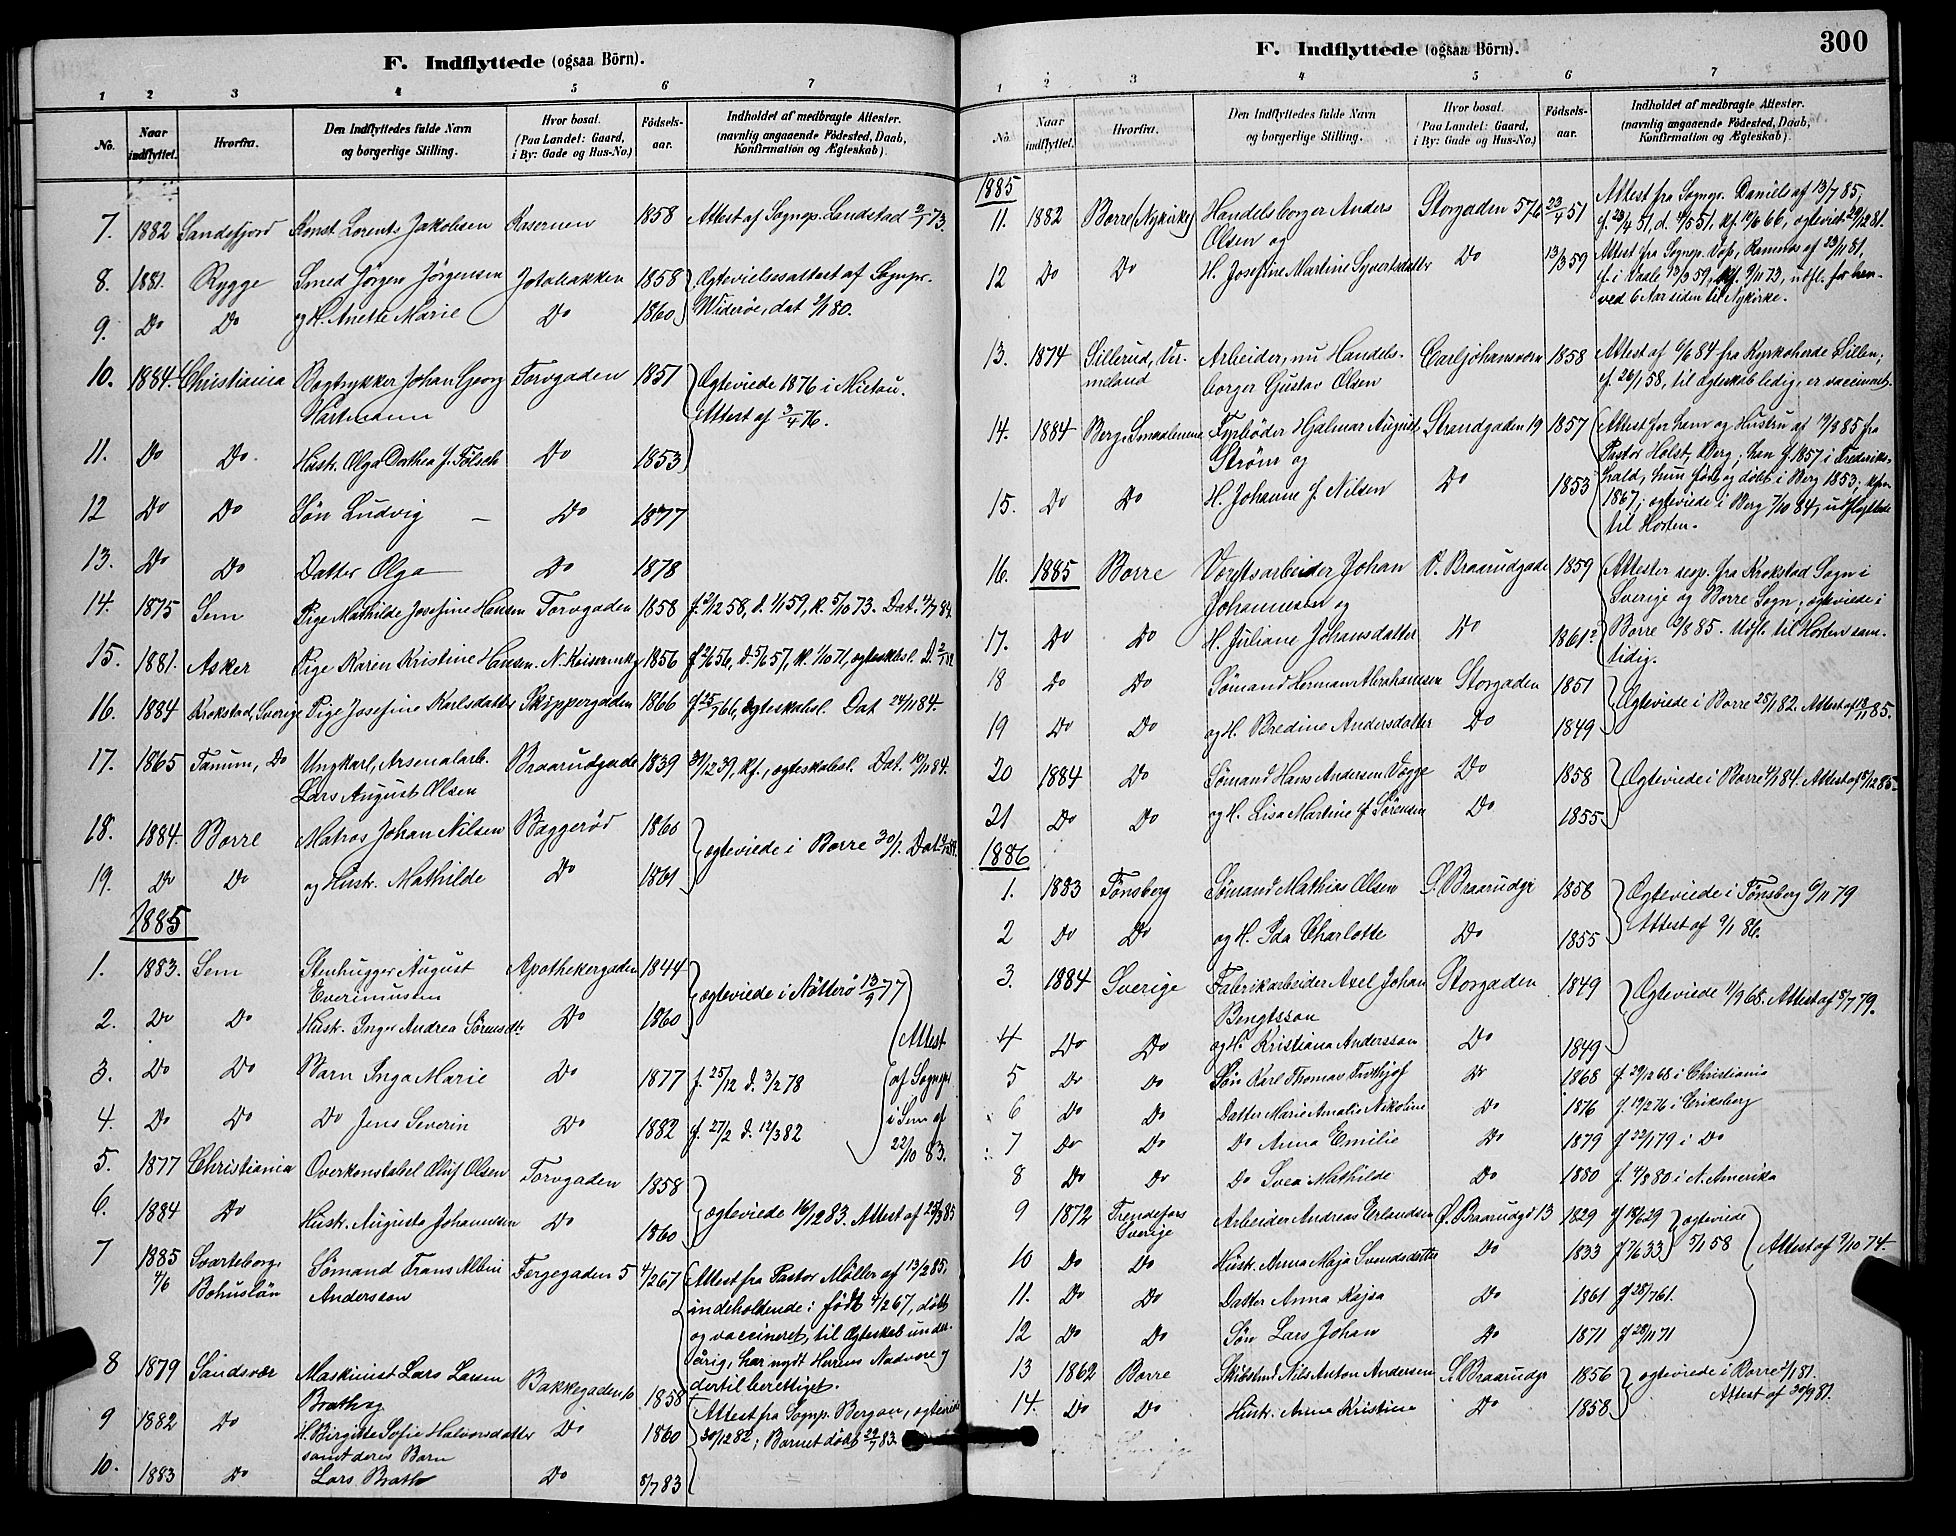 F. Indflyttede (ogsaa Börn).
1 2 3 4 5 6 7
No. Naar indflyttet. Hvorfra. Den Indflyttedes fulde Navn og borgerlige Stilling. Hvor bosat. (Paa Landet: Gaard, i By: Gade og Hus-No.) Födsels-aar. Indholdet af medbragte Attester. (navnlig angaaende Födested, Daab, Konfirmation og Ægteskab).
7. 1882 Sandefjord Konst. Lorents Jakobsen Kasernen 1858 Attest af Sognep. Landstad 2/5 73.
8. 1881. Rygge Smed Jörgen Jörgensen 1858 Ægtevielsesattest af Sognepr.
9. Do Do og H. Anette Marie Do 1860 Wideröe, dat
10. 1884. Christiania Bogtrykker Johan Georg Torvgaden 1851 Ægteviede 1876 i Mietau.
Hartmann Attest af 3/4 76.
11. Do Do Hustr. Olga Dorthea f. Fölsch Do 1853
12 Do Do Sön Ludvig — Do 1877
13. Do Do Datter Olga Do 1878
14. 1875 Sem Pige Mathilde Josefine Hansen Torvgaden 1858
15. 1881. Asker Pige Karen Kristine Hansen 1856
16. 1884 Krokstad, Sverige Pige Josefine Karlsdatter Skippergaden 1866 Ægteskabsl. Dat 24/11 84.
17. 1865 Tanum, Do Ungkarl, Arsenalarb. Braarudgade 1839 Kf., ægteskabsl. Dat.
Lars August Olsen
18. 1884. Borre Matros Johan Nilsen Baggeröd 1860 ægteviede i Borre
19. Do Do og Hustr. Mathilde Do 1861
1885
1. 1883. Sem Stenhugger August Apothekergaden 1844 ægteviede i Nötterö 13/9 77
Evensen
2. Do Do Hustr. Inger Andrea Sörensdtr Do 1860 Attest
3. Do Do Barn Inga Marie Do 1877 f. 25/12 d. 3/2 78 af Sognepr.
4. Do Do Do Jens Severin Do 1882 f. 27/2 d. 12/3 82 i Sem af
22/10 83.
5. 1877 Christiania Overkonstabel Oluf Olsen Torvgaden 1858
6. 1884 Do Hustr. Augusta Johannesen Do 1860 ægteviede 16/12 83. Attest af
7 1885 4/6 Svarteborg, Bohuslän Sömand Frans Albin Andersson Torgegaden 5 4/2 67 Attest fra Pastor Möller af 13/2 85,
indeholdende: födt 4/2 67, döbt
og vaccineret, til Ægteskab under-
aarig, har nydt Herrens Nadvere og
dertil berettiget.
8 1879 Sandsvær Maskinist Lars Larsen Bakkegaden 1858
Brathag
9 1882 Do H. Birgitte Sofie Halvorsdatter Do 1860 Attest fra Sognep. Bergan, ægteviede
samt deres Barn 30/12 82; Barnet döbt 29/7 83.
10. 1883 Do Lars Brath Do 8/7 83
F. Indflyttede (ogsaa Börn).
300
1 2 3 4 5 6 7
No. Naar indflyttet. Hvorfra. Den Indflyttedes fulde Navn og borgerlige Stilling. Hvor bosat. (Paa Landet: Gaard, i By: Gade og Hus-No.) Födsels-aar. Indholdet af medbragte Attester. (navnlig angaaende Födested, Daab, Konfirmation og Ægteskab).
1885
11. 1882 Borre (Nykirke) Handelsborger Anders Storgaden 576 23/4 51 Attest fra Sognep. Daniels af 13/7 85,
Olsen og
12 Do Do H. Josefine Martine Syvertsdatter Do 13/3 59 Attest fra Sognep. Vosz, Ramnæs af 23/11 81,
f. i Vaale 13/3 59, utfl. for hen-
ved 6 Aar siden til Nykirke.
13. 1874 Sillerud, Ver- Arbeider, nu Handels- Carljohansværn 1858 Attest af 4/6 84 fra Kyrkoherde Lillen,
meland borger Gustav Olsen f. 26/1 58, til Ægteskab ledig, er vaccineret.
14. 1884 Berg, Smaalenene Fyrböder Hjalmar August Strandgaden 19 1857 Attest for ham og Hustru af 19/3 85 fra
Ström og Pastor Holst, Berg; han f. 1857 i Frederiks-
15. Do Do H. Johanne f. Nilsen Do 1853 hald, hun föd og döbt i Berg 1853; kfm
1867; ægteviede i Berg 7/10 84, udflyttede
til Horten.
16. 1885 Borre Værftsarbeider Johan V. Braarudgade 1859 Attester resp. fra Krokstad Sogn i
Johannesen og Sverige og Borre Sogn; ægteviede i
17. Do Do H. Juliane Johansdatter Do 1861? Borre 85. Udfl. til Horten sam-
tidig.
18 Do Do Sömand Herman Abrahamsen Storgaden 1851 Ægteviede i Borre 25/1 82. Attest af 18/11 85.
19 Do Do og H. Bredine Andersdatter Do 1849
20 1884 Do Sömand Hans Andersen Vogge Do 1858 Ægteviede i Borre 84. Attest af 5/12 85.
21 Do Do og H. Lisa Martine f. Sörensen Do 1855
1886
1. 1883 Tönsberg Sömand Mathias Olsen S. Braarudg. 1858 Ægteviede i Tönsberg 6/11 79
2 Do Do og H. Ida Charlotte Do 1855 Attest af 9/1 86.
3. 1884 Sverige Fabrikarbeider Axel Johan Storgaden 1849 Ægteviede 11/9 68. Attest af 8/7 79.
Bengtsson
4 Do Do og H. Kristiana Andersson Do 1849
5 Do Do Sön Karl Thomas Frithjof Do 1868 f. 29/12 68 i Christiania
6 Do Do Datter Marie Amalie Nikoline Do 1876 f. 19/2 76 i Eriksberg
7 Do Do Do Anna Emilie Do 1879 f. 22/1 79 i Do
8 Do Do Do Svea Mathilde Do 1880 f. 4/8 80 i N. Amerika
9 1872 Sverige Arbeider Andreas Erlandsen Ö. Braarudgd 13 1829 f 18/6 29 ægteviede
10 Do Do Hustr. Anna Maja Svendsdatter Do 1833 f 7/6 33 5/1 58 Attest af 9/10 74.
11. Do Do Datter Anna Kajsa Do 1861 f 28/7 61.
12 Do Do Sön Lars Johan Do 1871 f 28/11 71
13 1862 Borre Skibstmd Nils Anton Andersen S. Braarudg. 1856 ægteviede i Borre 81.
14. Do Do Hustr. Anna Kristine Do 1858 Attest af 30/9 81.